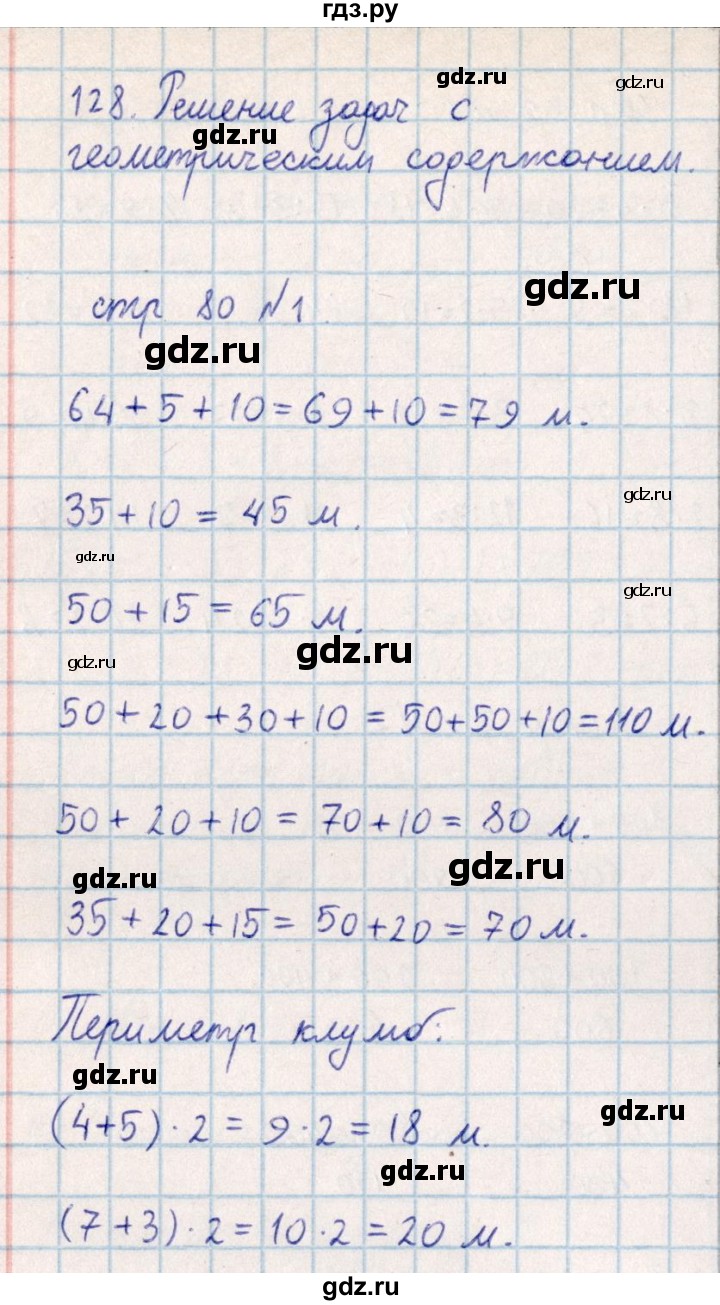 гдз.ру
gdz.ru
gdz.ru
128. Решение задач с
gdz.ru
геометрическим содержанием.
gdz.ru
стр 80 №1
gdz.ru
64+5+10=69+10=79 м.
gdz.ru
35+10=45 м.
gdz.ru
gdz.ru
50+15=65 м.
gdz.ru
gdz.ru
50+20+30+10=50+50+10=110 м.
50+20+10=70+10=80 м.
gdz.ru
gdz.ru
35+20+15=50+20=70 м.
Периметр клумб:
gdz.ru
gdz.ru
(4+5)·2=9·2=18 м.
gdz.ru
(7+3)·2=10·2=20 м.
gdz.ru